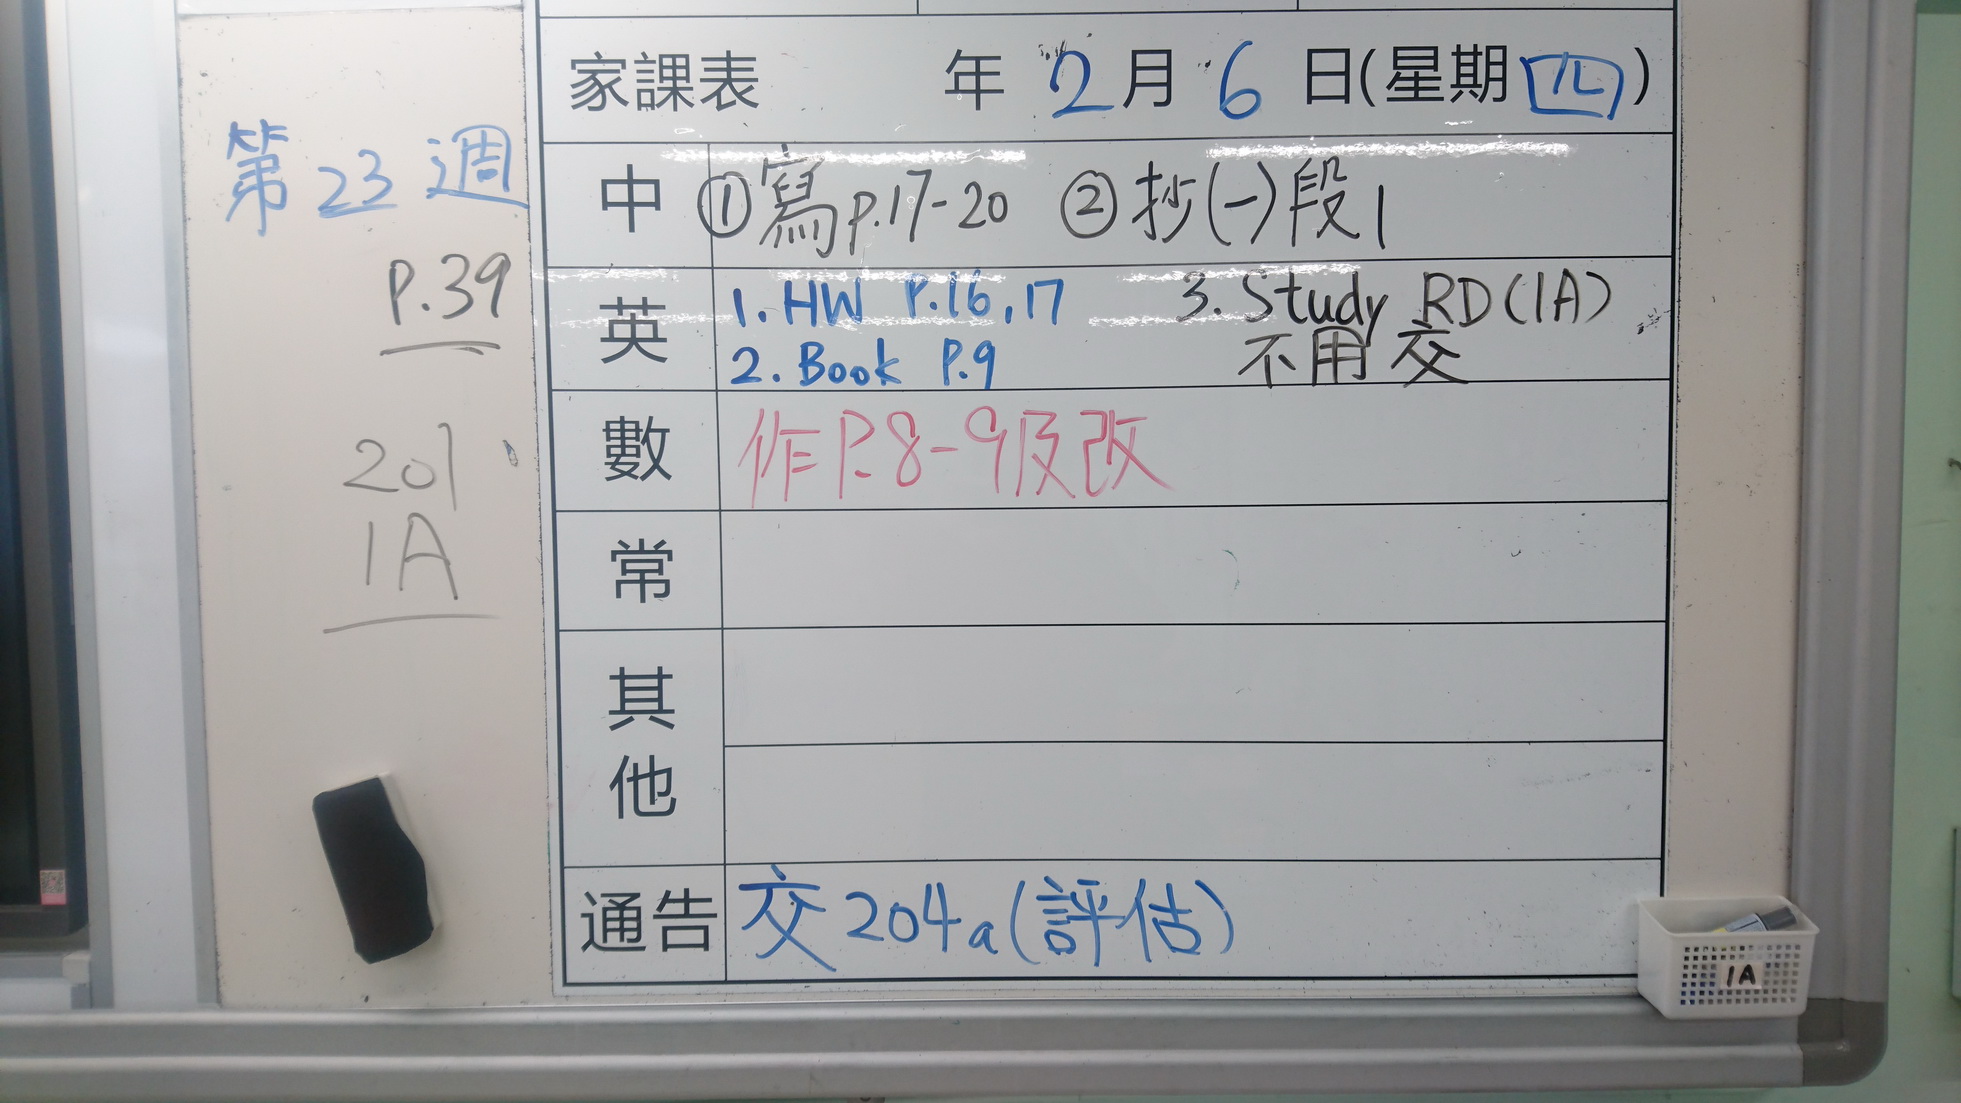 第23週
P.39
201
1A
家課表 年2月6日(星期四)
中 ①寫p.17-20 ②抄(一)段1
英 1. HW P.16,17 3. Study RD(1A)
2. Book P.9 不用交
數 作P.8-9及改
常
其他
通告 交204a(評估)
1A